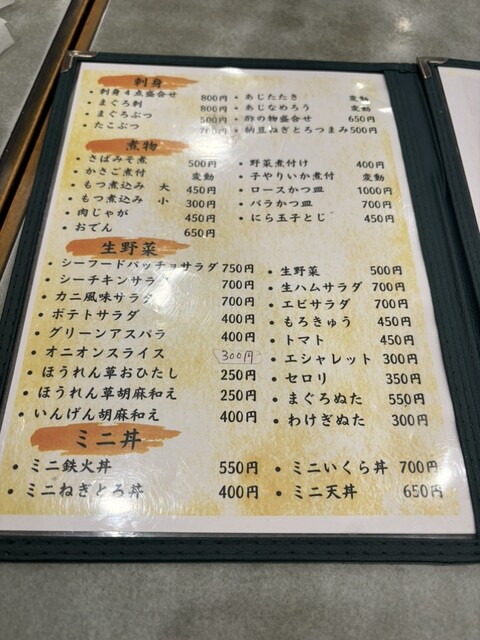 刺身
・刺身4点盛合せ 800円
・まぐろ刺 800円
・まぐろぶつ 500円
・たこぶつ 700円
・あじたたき 変動
・あじなめろう 変動
・酢の物盛合せ 650円
・納豆ねぎとろつまみ 500円
煮物
・さばみそ煮 500円
・かさご煮付 変動
・もつ煮込み 大 450円
・もつ煮込み 小 300円
・肉じゃが 450円
・おでん 650円
・野菜煮付け 400円
・子やりいか煮付 変動
・ロースかつ皿 1000円
・バラかつ皿 700円
・にら玉子とじ 450円
生野菜
・シーフードバッチョサラダ 750円
・シーチキンサラダ 700円
・カニ風味サラダ 700円
・ポテトサラダ 400円
・グリーンアスパラ 400円
・オニオンスライス 300円
・ほうれん草おひたし 250円
・ほうれん草胡麻和え 250円
・いんげん胡麻和え 400円
・生野菜 500円
・生ハムサラダ 700円
・エビサラダ 700円
・もろきゅう 450円
・トマト 450円
・エシャレット 300円
・セロリ 350円
・まぐろぬた 550円
・わけぎぬた 300円
ミニ丼
・ミニ鉄火丼 550円
・ミニねぎとろ丼 400円
・ミニいくら丼 700円
・ミニ天丼 650円